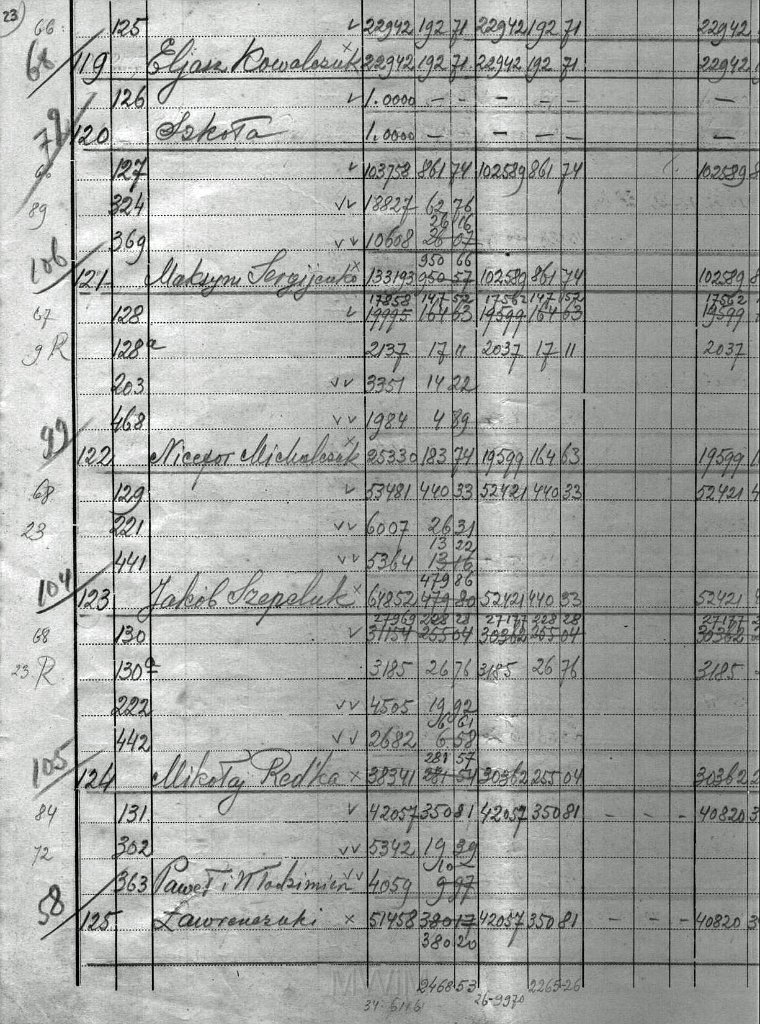 23
66 125 v 22942 192 71 22942 192 71 22942
68 119 Eljasz Kowalczuk x 22942 192 71 22942 192 71 22942
126 v 1.0000 — - — — - —
79 120 Szkoła 1.0000 — - — — - —
127 v 103758 861 74 102589 861 74 102589 8
89 324 vv 18827 62 76
26 16
369 vv 10608 26 07
950 66
106 121 Maksym Sergijenko x 133193 950 57 102589 861 74 102589 8
17858 147 52 17562 147 52 17562
67 128 v 19995 164 63 19599 164 63 19599
9 R 128a 2137 17 11 2037 17 11 2037
203 vv 3351 14 22
468 vv 1984 4 89
99 122 Nicefor Michalczuk x 25330 183 74 19599 164 63 19599 1
68 129 v 53481 440 33 52421 440 33 52421 4
23 221 vv 6007 26 31
13 22
441 vv 5364 13 16
479 86
104 123 Jakób Szepeluk x 64852 479 80 52421 440 33 52421 4
27969 228 28 27177 228 28 27177 2
68 130 v 31154 255 04 30362 255 04 30362
23 R 130a 3185 26 76 3185 26 76 3185
222 vv 4505 19 92
6 61
442 vv 2682 6 58
281 57
105 124 Mikołaj Redʹka x 38341 281 54 30362 255 04 30362 2
84 131 v 42057 350 81 42057 350 81 - - - 40820 3
72 302 vv 5342 19 39
10 —
363 Paweł i Włodzimierz vv 4059 9 97
58 125 Ławrenczuki x 51458 380 17 42057 350 81 - - - 40820 3
380 20
MWiM
2468 53 2265-26
26-9970